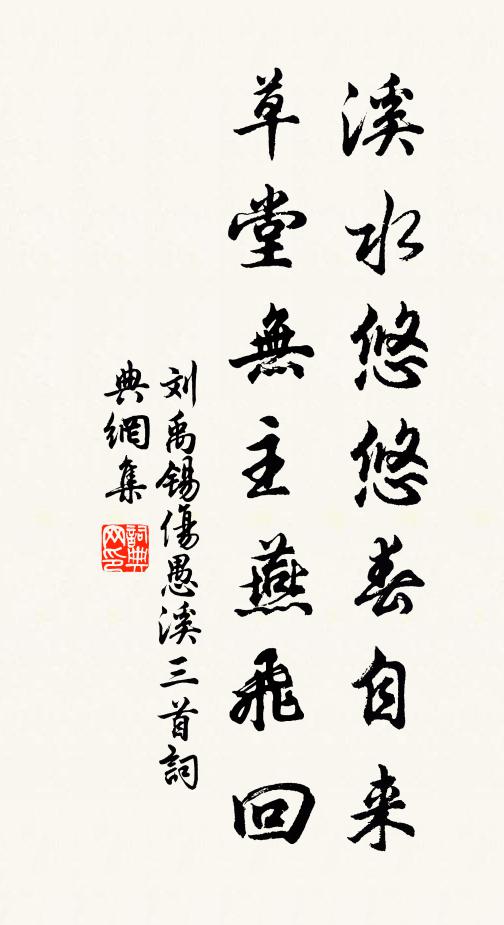 溪水悠悠春自来
草堂無主燕飛回
刘禹锡傷愚溪三首詞
典網集
詞典网印